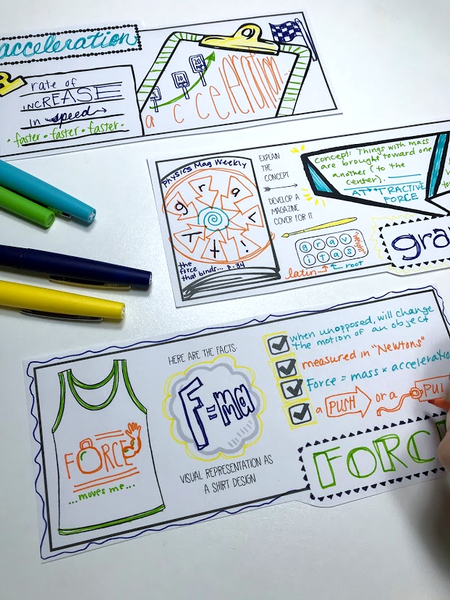 acceleration
rate of
INCREASE
in speed
• faster • faster • faster •
acceleration
Physics Mag Weekly
gravity!
the
force
that binds... p. 84
EXPLAIN
THE
CONCEPT
DEVELOP A
MAGAZINE
COVER FOR IT
concept: Things with mass
are brought toward one
another (to the
center).
ATTRACTIVE
FORCE
grav
itas
latin root
gra
FORCE
...moves me...
HERE ARE THE FACTS:
F=ma
VISUAL REPRESENTATION AS
A SHIRT DESIGN
when unopposed, will change
the motion of an object
measured in "Newtons"
Force = mass × acceleratio
a PUSH or a PUL
FORC